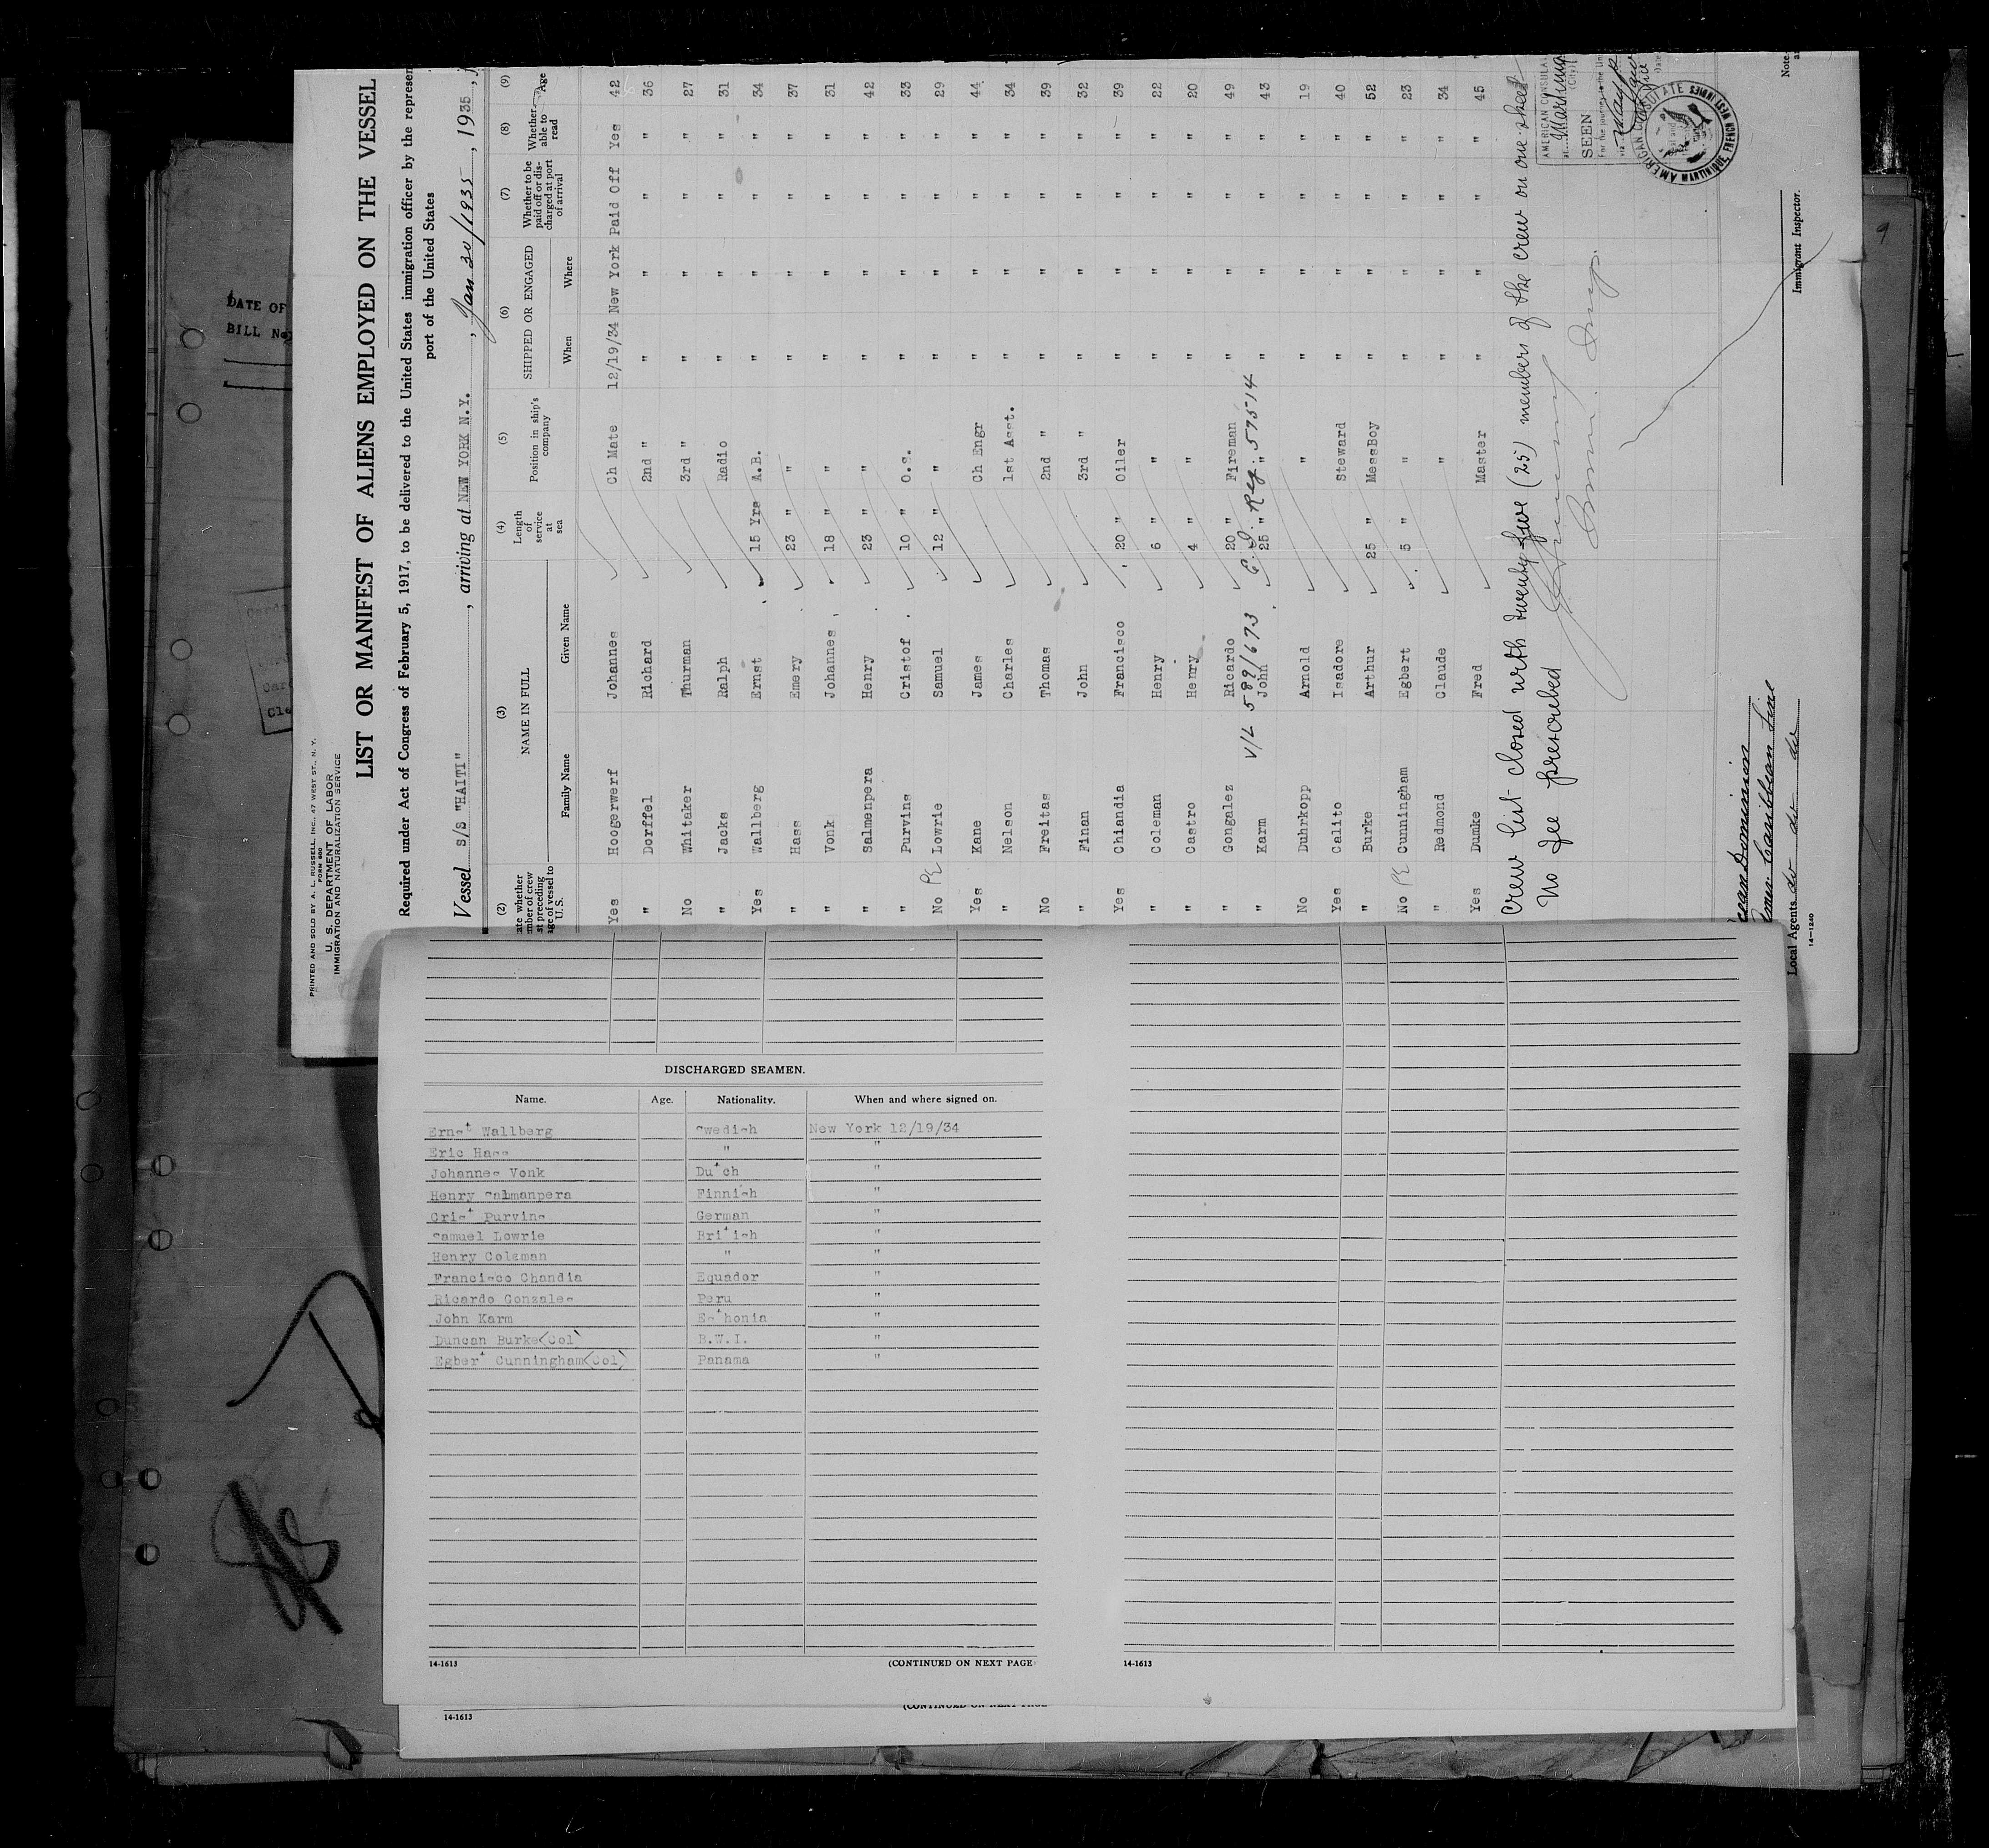 PRINTED AND SOLD BY A. L. RUSSELL, INC., 47 WEST ST., N. Y.
FORM 680
U. S. DEPARTMENT OF LABOR
IMMIGRATION AND NATURALIZATION SERVICE
LIST OR MANIFEST OF ALIENS EMPLOYED ON THE VESSEL
Required under Act of Congress of February 5, 1917, to be delivered to the United States immigration officer by the represen
port of the United States
Vessel S/S "HAITI", arriving at NEW YORK N.Y., Jan 30/1935, 1935,
(2) (3) (4) (5) (6) (7) (8) (9)
ate whether mber of crew st preceding age of vessel to U. S. NAME IN FULL Length of service at sea Position in ship's company SHIPPED OR ENGAGED Whether to be paid off or dis-charged at port of arrival Whether able to read Age
Family Name Given Name When Where
Yes Hoogerwerf Johannes Ch Mate 12/19/34 New York Paid Off Yes 42
" Dorffel Richard 2nd " " " " " 36
No Whitaker Thurman 3rd " " " " " 27
" Jacks Ralph Radio " " " " 31
Yes Wallberg Ernst 15 Yrs A.B. " " " " 34
" Hass Emery 23 " " " " " " 37
" Vonk Johannes 18 " " " " " " 31
" Salmenpera Henry 23 " " " " " " 42
" Purvins Cristof 10 " O.S. " " " " 33
No PE Lowrie Samuel 12 " " " " " " 29
Yes Kane James Ch Engr " " " " 44
" Nelson Charles 1st Asst. " " " " 34
No Freitas Thomas 2nd " " " " " 39
" Finan John 3rd " " " " " 32
Yes Chiandia Francisco 20 " Oiler " " " " 39
" Coleman Henry 6 " " " " " " 22
" Castro Henry 4 " " " " " " 20
" Gongalez Ricardo 20 " Fireman " " " " 49
V/L 589/673 C.I. Reg. 57514
" Karm John 25 " " " " " " 43
No Duhrkopp Arnold " " " " " 19
Yes Calito Isadore Steward " " " " 40
" Burke Arthur 25 " MessBoy " " " " 52
No PE Cunningham Egbert 5 " " " " " " 23
" Redmond Claude " " " " " 34
Yes Dumke Fred Master " " " " 45
Crew list closed with twenty five (25) members of the crew on one sheet
No fee prescribed
AMERICAN CONSULA
at
(City)
SEEN
For the journey to the Uni
via
Date
AMERICAN CONSULATE
MARTINIQUE, FRENCH WEST INDIES
Immigrant Inspector.
Note
cean Dominion
Amer. Caribbean Line
Local Agents do do do
14—1240
DATE OF
BILL No
9
DISCHARGED SEAMEN.
Name. Age. Nationality. When and where signed on.
Ernst Wallberg Swedish New York 12/19/34
Eric Hass " "
Johannes Vonk Dutch "
Henry Salmanpera Finnish "
Crist Purvins German "
Samuel Lowrie British "
Henry Coleman " "
Francisco Chandia Equador "
Ricardo Gonzales Peru "
John Karm Esthonia "
Duncan Burke(Col) B.W.I. "
Egbert Cunningham(Col) Panama "
14-1613 (CONTINUED ON NEXT PAGE
14-1613
(CONTINUED ON NEXT PAGE
14-1613